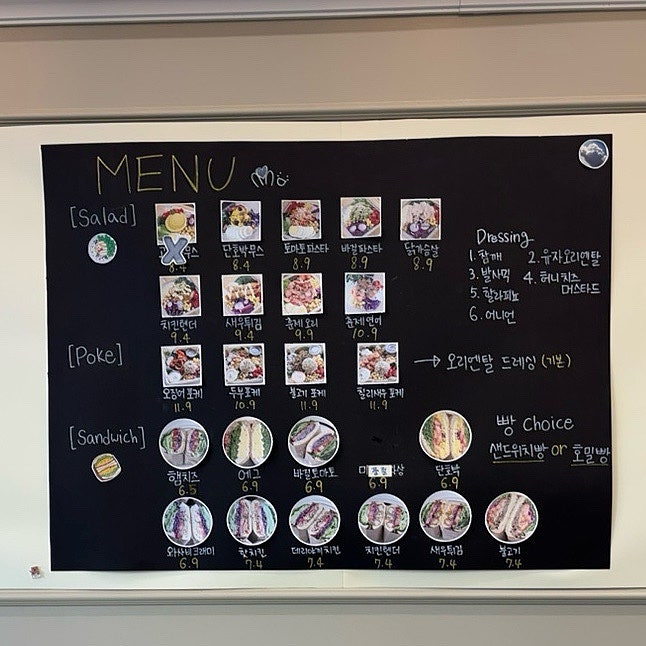 MENU
[Salad]
무스 단호박무스 토마토파스타 바질파스타 닭가슴살
8.4 8.4 8.9 8.9 8.9
치킨텐더 새우튀김 훈제오리 훈제연어
9.4 9.4 9.9 10.9
Dressing
1. 참깨 2. 유자오리엔탈
3. 발사믹 4. 허니치즈
머스타드
5. 할라피뇨
6. 어니언
[Poke]
오징어 포케 두부포케 불고기 포케 칠리새우 포케
11.9 10.9 11.9 11.9
→ 오리엔탈 드레싱 (기본)
[Sandwich]
햄치즈 에그 바질토마토 품절 단호박
6.5 6.9 6.9 6.9 6.9
빵 Choice
샌드위치빵 or 호밀빵
와사비크래미 핫치킨 데리야끼치킨 치킨텐더 새우튀김 불고기
6.9 7.4 7.4 7.4 7.4 7.4